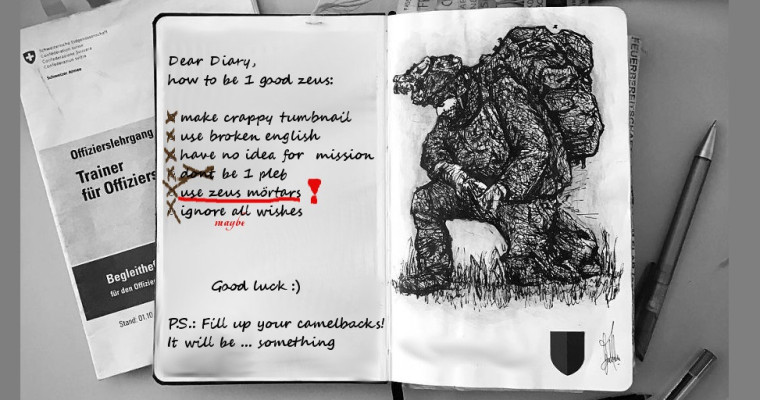 Schweizerische Eidgenossenschaft
Confédération suisse
Confederazione Svizzera
Confederaziun svizra
Schweizer Armee
Offizierslehrgang
Trainer
für Offiziers
Begleithef
für den Offizier
Stand: 01.10
Dear Diary,
how to be 1 good zeus:
make crappy tumbnail
use broken english
have no idea for mission
dont be 1 pleb
use zeus mörtars !
ignore all wishes
maybe
Good luck :)
PS.: Fill up your camelbacks!
It will be ... something